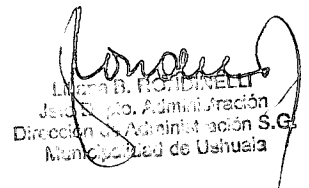 Liliana B. RONDINELLI
Jefe Dpto. Administración
Dirección de Administración S.G.
Municipalidad de Ushuaia